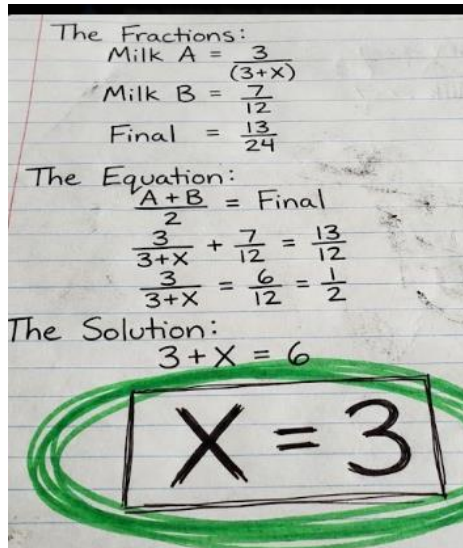 The Fractions:
Milk A = 3/(3+x)
Milk B = 7/12
Final = 13/24
The Equation:
A+B/2 = Final
3/3+x + 7/12 = 13/12
3/3+x = 6/12 = 1/2
The Solution:
3+x = 6
x = 3